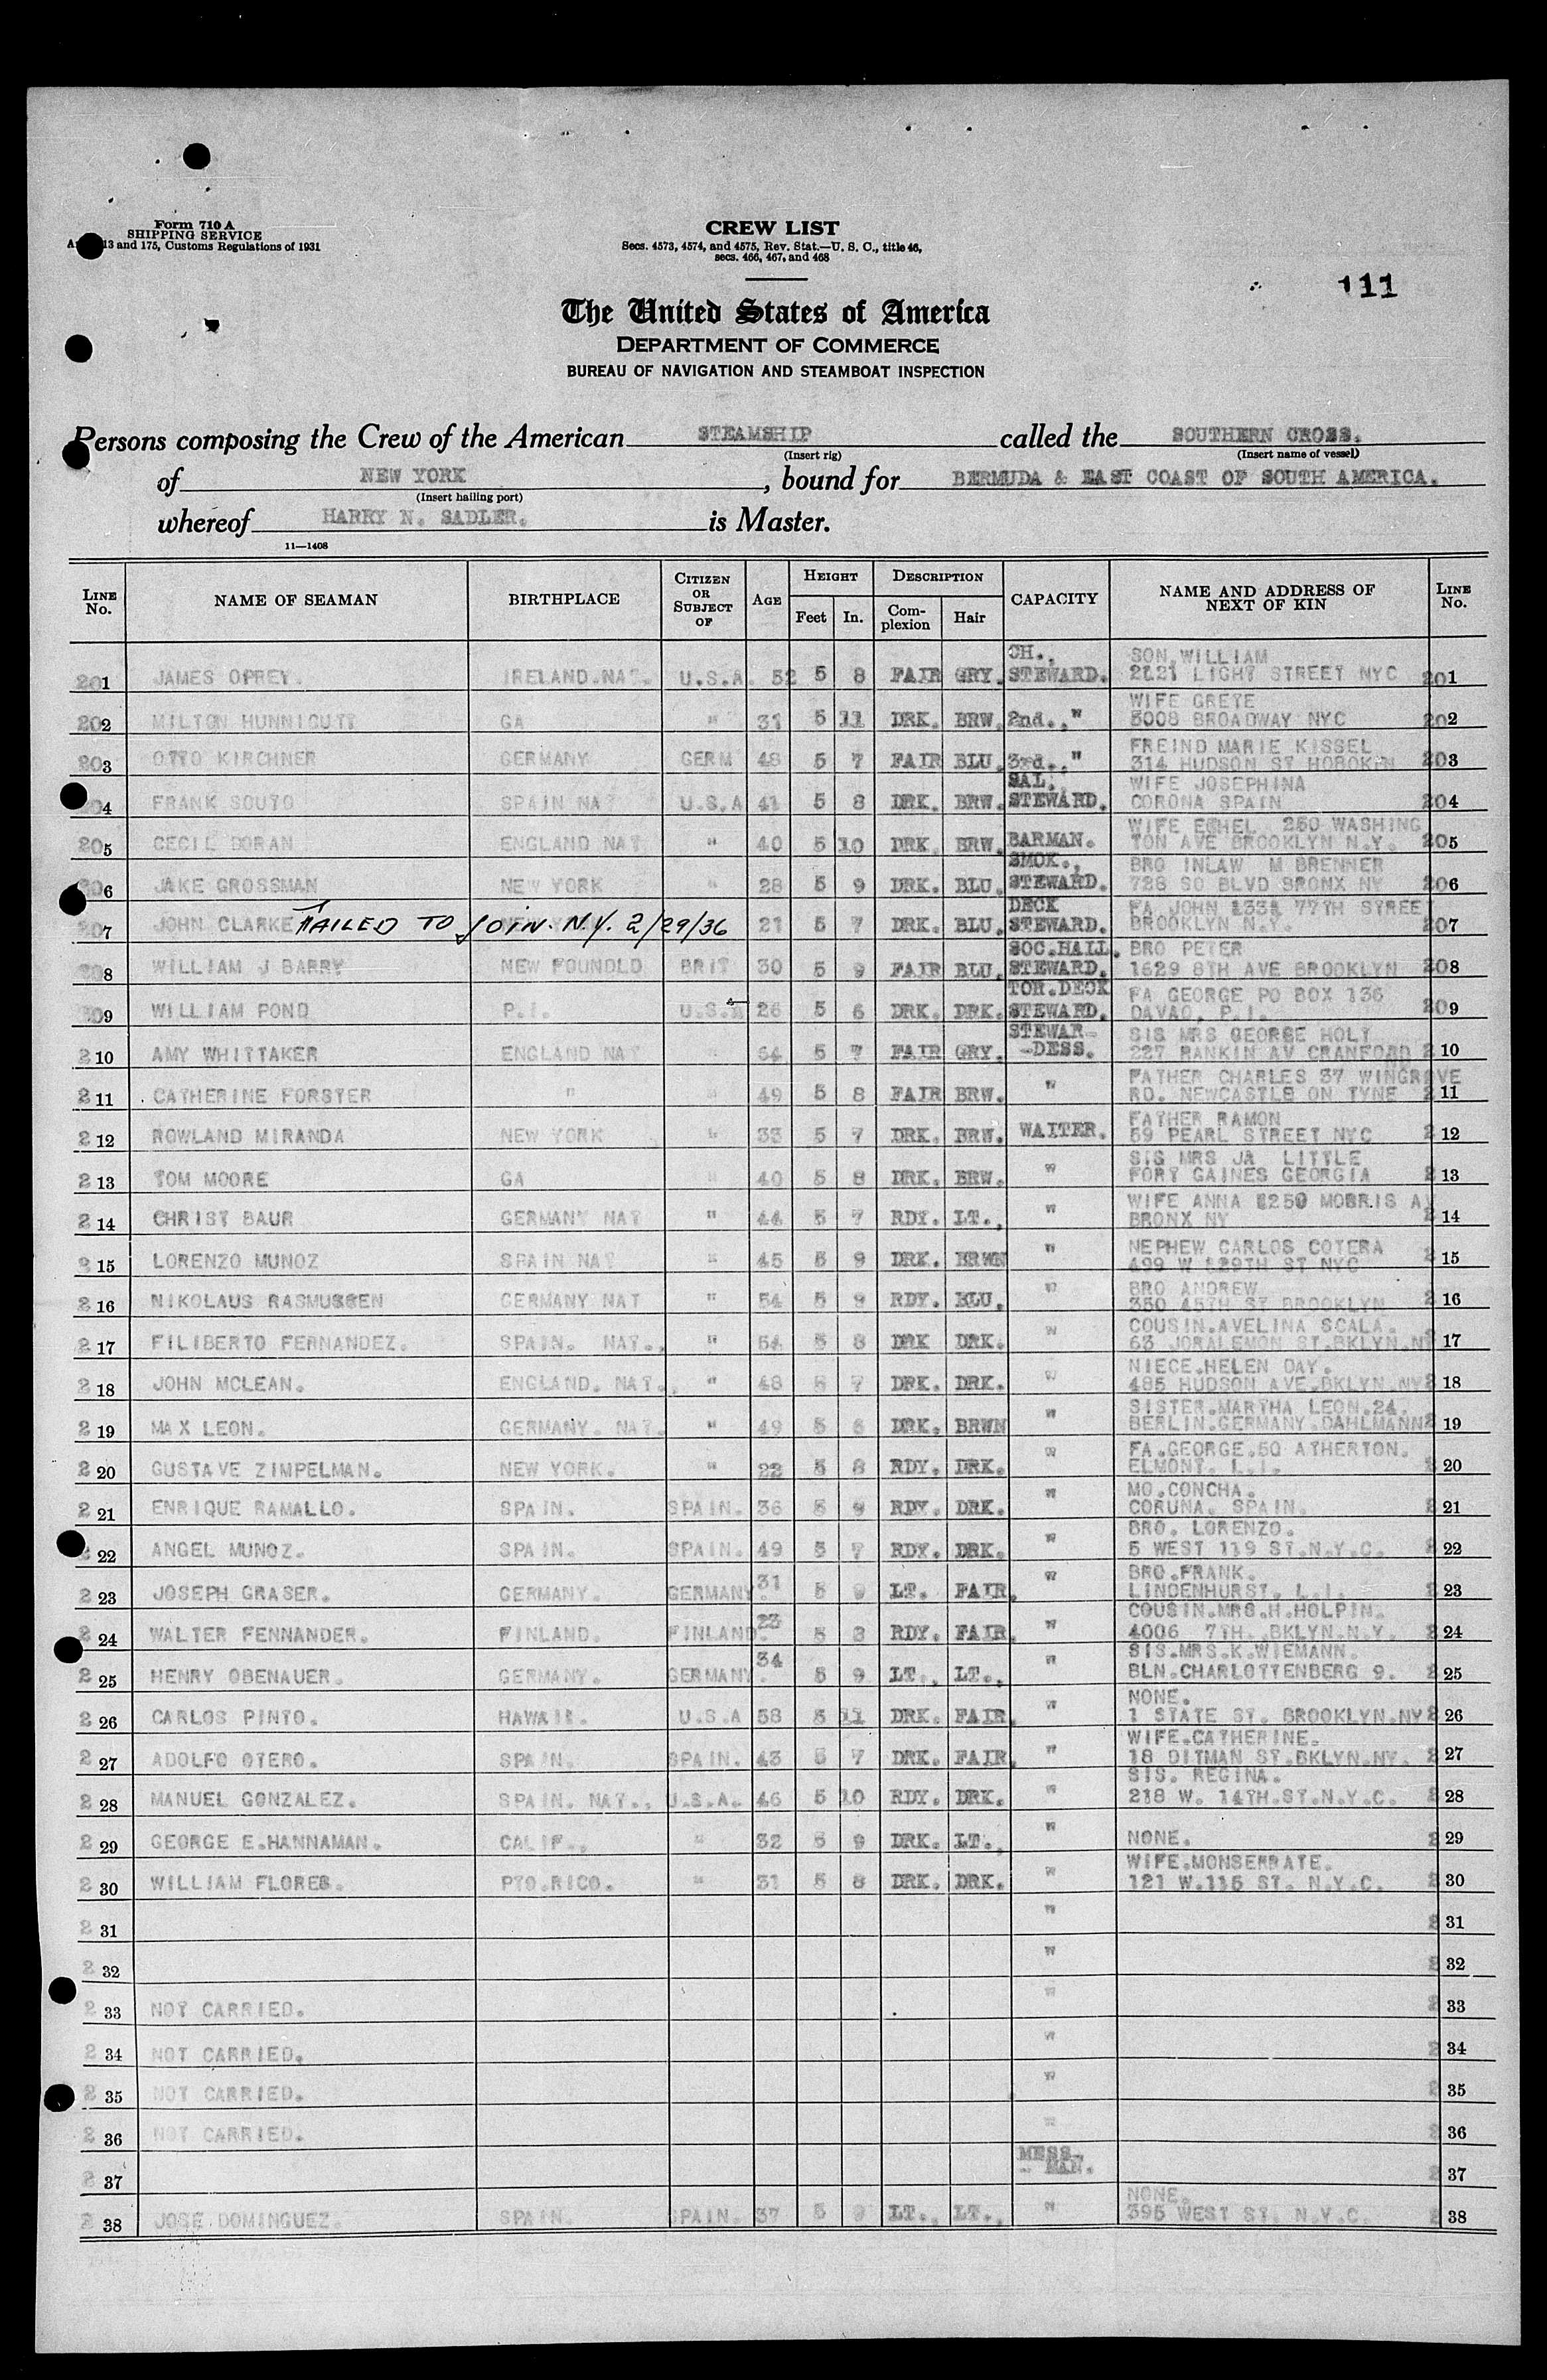 Form 710 A
SHIPPING SERVICE
13 and 175, Customs Regulations of 1931
CREW LIST
Secs. 4573, 4574, and 4575, Rev. Stat.—U. S. C., title 46,
secs. 466, 467, and 468
111
The United States of America
DEPARTMENT OF COMMERCE
BUREAU OF NAVIGATION AND STEAMBOAT INSPECTION
Persons composing the Crew of the American STEAMSHIP called the SOUTHERN CROSS.
(Insert rig) (Insert name of vessel)
of NEW YORK, bound for BERMUDA & EAST COAST OF SOUTH AMERICA.
(Insert hailing port)
whereof HARRY N. SADLER. is Master.
11—1408
LINE No. NAME OF SEAMAN BIRTHPLACE CITIZEN OR SUBJECT OF AGE HEIGHT Feet In. DESCRIPTION Complexion Hair CAPACITY NAME AND ADDRESS OF NEXT OF KIN LINE No.
201 JAMES OPREY. IRELAND.NAT. U.S.A. 52 5 8 FAIR GRY. CH., STEWARD. SON WILLIAM LIGHT STREET NYC 201
202 MILTON HUNNICUTT GA " 31 5 11 DRK. BRW. 2nd.," WIFE GRETE 5008 BROADWAY NYC 202
203 OTTO KIRCHNER GERMANY GERM 48 5 7 FAIR BLU. 3rd.," FREIND MARIE KISSEL 314 HUDSON ST HOBOKEN 203
204 FRANK SOUTO SPAIN NAT U.S.A 41 5 8 DRK. BRW. SAL. STEWARD. WIFE JOSEPHINA CORONA SPAIN 204
205 CECIL DORAN ENGLAND NAT " 40 5 10 DRK. BRW. BARMAN. WIFE ETHEL 250 WASHING TON AVE BROOKLYN N.Y. 205
206 JAKE GROSSMAN NEW YORK " 28 5 9 DRK. BLU. SMOK., STEWARD. BRO INLAW M BRENNER 728 SO BLVD BRONX NY 206
207 JOHN CLARKE FAILED TO JOIN. N.Y. 2/29/36 21 5 7 DRK. BLU. DECK STEWARD. FA JOHN 77TH STREET BROOKLYN N.Y. 207
208 WILLIAM J BARRY NEW FOUNDLD BRIT 30 5 9 FAIR BLU. SOC.HALL. STEWARD. BRO PETER 1629 8TH AVE BROOKLYN 208
209 WILLIAM POND P.I. U.S.A 26 5 6 DRK. DRK. TOR.DECK STEWARD. FA GEORGE PO BOX 136 DAVAO, P.I. 209
210 AMY WHITTAKER ENGLAND NAT " 54 5 7 FAIR GRY. STEWAR-DESS. SIS MRS GEORGE HOLT 227 RANKIN AV CRANFORD 210
211 CATHERINE FORSTER " " 49 5 8 FAIR BRW. " FATHER CHARLES 37 WINGROVE RD. NEWCASTLE ON TYNE 211
212 ROWLAND MIRANDA NEW YORK " 33 5 7 DRK. BRW. WAITER. FATHER RAMON 59 PEARL STREET NYC 212
213 TOM MOORE GA " 40 5 8 DRK. BRW. " SIS MRS JA LITTLE FORT GAINES GEORGIA 213
214 CHRIST BAUR GERMANY NAT " 44 5 7 RDY. LT., " WIFE ANNA 1250 MORRIS AV BRONX NY 214
215 LORENZO MUNOZ SPAIN NAT " 45 5 9 DRK. BRWN " NEPHEW CARLOS COTERA 499 W 129TH ST NYC 215
216 NIKOLAUS RASMUSSEN GERMANY NAT " 54 5 9 RDY. BLU. " BRO ANDREW 350 45TH ST BROOKLYN 216
217 FILIBERTO FERNANDEZ. SPAIN. NAT., " 54 5 8 DRK DRK. " COUSIN.AVELINA SCALA. 63 JORALEMON ST.BKLYN.NY 217
218 JOHN MCLEAN. ENGLAND. NAT., " 48 5 7 DRK. DRK. " NIECE.HELEN DAY. 485 HUDSON AVE.BKLYN.NY 218
219 MAX LEON. GERMANY. NAT. " 49 5 6 DRK. BRWN " SISTER.MARTHA LEON.24. BERLIN.GERMANY.DAHLMANN 219
220 GUSTAVE ZIMPELMAN. NEW YORK. " 22 5 8 RDY. DRK. " FA.GEORGE.50 ATHERTON. ELMONT. L.I. 220
221 ENRIQUE RAMALLO. SPAIN. SPAIN. 36 5 9 RDY. DRK. " MO.CONCHA. CORUNA. SPAIN. 221
222 ANGEL MUNOZ. SPAIN. SPAIN. 49 5 7 RDY. DRK. " BRO. LORENZO. 5 WEST 119 ST.N.Y.C. 222
223 JOSEPH GRASER. GERMANY. GERMANY. 31 5 9 LT. FAIR. " BRO.FRANK. LINDENHURST. L.I. 223
224 WALTER FENNANDER. FINLAND. FINLAND. 23 5 8 RDY. FAIR. " COUSIN.MRS.H.HOLPIN. 4006 7TH. BKLYN.N.Y. 224
225 HENRY OBENAUER. GERMANY. GERMANY 34 5 9 LT., LT., " SIS.MRS.K.WIEMANN. BLN.CHARLOTTENBERG 9. 225
226 CARLOS PINTO. HAWAII. U.S.A 58 5 11 DRK. FAIR. " NONE. 1 STATE ST. BROOKLYN.NY 226
227 ADOLFO OTERO. SPAIN. SPAIN. 43 5 7 DRK. FAIR. " WIFE.CATHERINE. 18 DITMAN ST.BKLYN.NY. 227
228 MANUEL GONZALEZ. SPAIN. NAT., U.S.A. 46 5 10 RDY. DRK. " SIS. REGINA. 218 W. 14TH.ST.N.Y.C. 228
229 GEORGE E.HANNAMAN. CALIF., " 32 5 9 DRK. LT., " NONE. 229
230 WILLIAM FLORES. PTO.RICO. " 31 5 8 DRK. DRK. " WIFE.MONSERRATE. 121 W.115 ST. N.Y.C. 230
231 " 231
232 " 232
233 NOT CARRIED. " 233
234 NOT CARRIED. " 234
235 NOT CARRIED. " 235
236 NOT CARRIED. " 236
237 MESS-MAN. 237
238 JOSE DOMINGUEZ. SPAIN. SPAIN. 37 5 9 LT., LT., " NONE. 395 WEST ST. N.Y.C. 238